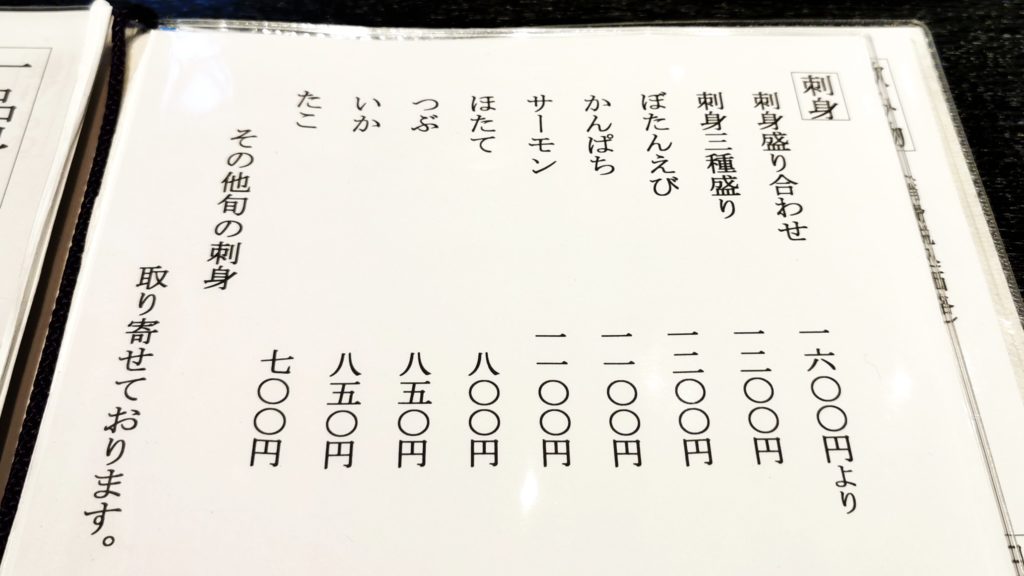 刺身
刺身盛り合わせ 一六〇〇円より
刺身三種盛り 一二〇〇円
ぼたんえび 一二〇〇円
かんぱち 一一〇〇円
サーモン 一一〇〇円
ほたて 八〇〇円
つぶ 八五〇円
いか 八五〇円
たこ 七〇〇円
その他旬の刺身
取り寄せております。